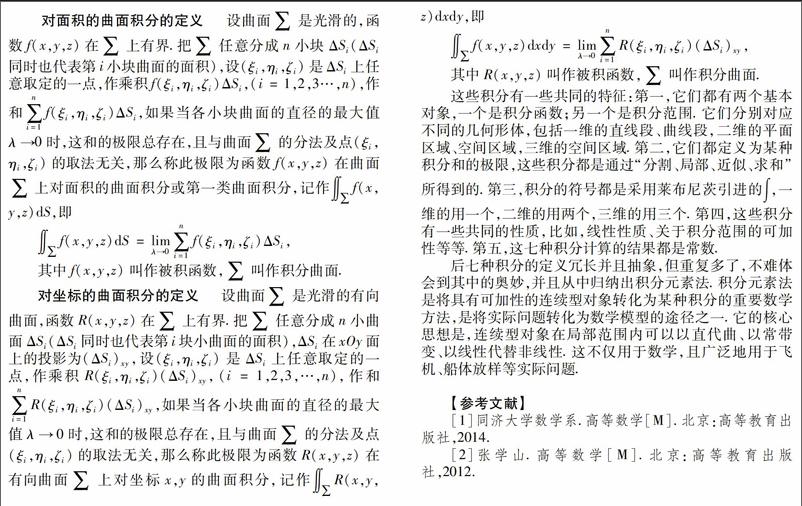 对面积的曲面积分的定义 设曲面 ∑ 是光滑的,函
数 f(x,y,z) 在 ∑ 上有界. 把 ∑ 任意分成 n 小块 ΔSᵢ(ΔSᵢ
同时也代表第 i 小块曲面的面积),设(ξᵢ,ηᵢ,ζᵢ) 是 ΔSᵢ 上任
意取定的一点,作乘积 f(ξᵢ,ηᵢ,ζᵢ)ΔSᵢ,(i = 1,2,3⋯,n),作
和 ∑_{i=1}^{n} f(ξᵢ,ηᵢ,ζᵢ)ΔSᵢ,如果当各小块曲面的直径的最大值
λ →0 时,这和的极限总存在,且与曲面 ∑ 的分法及点(ξᵢ,
ηᵢ,ζᵢ) 的取法无关,那么称此极限为函数 f(x,y,z) 在曲面
∑ 上对面积的曲面积分或第一类曲面积分,记作 ∬_∑ f(x,
y,z)dS,即
∬_∑ f(x,y,z)dS = lim_{λ→0} ∑_{i=1}^{n} f(ξᵢ,ηᵢ,ζᵢ)ΔSᵢ,
其中 f(x,y,z) 叫作被积函数, ∑ 叫作积分曲面.
对坐标的曲面积分的定义 设曲面 ∑ 是光滑的有向
曲面,函数 R(x,y,z) 在 ∑ 上有界. 把 ∑ 任意分成 n 小曲
面 ΔSᵢ(ΔSᵢ 同时也代表第 i 块小曲面的面积),ΔSᵢ 在 xOy 面
上的投影为(ΔSᵢ)_{xy},设(ξᵢ,ηᵢ,ζᵢ) 是 ΔSᵢ 上任意取定的一
点,作乘积 R(ξᵢ,ηᵢ,ζᵢ)(ΔSᵢ)_{xy}, (i = 1,2,3,⋯,n),作和
∑_{i=1}^{n} R(ξᵢ,ηᵢ,ζᵢ)(ΔSᵢ)_{xy},如果当各小块曲面的直径的最大
值 λ → 0 时,这和的极限总存在,且与曲面 ∑ 的分法及点
(ξᵢ,ηᵢ,ζᵢ) 的取法无关,那么称此极限为函数 R(x,y,z) 在
有向曲面 ∑ 上对坐标 x,y 的曲面积分,记作 ∬_∑ R(x,y,
z)dxdy,即
∬_∑ f(x,y,z)dxdy = lim_{λ→0} ∑_{i=1}^{n} R(ξᵢ,ηᵢ,ζᵢ)(ΔSᵢ)_{xy},
其中 R(x,y,z) 叫作被积函数, ∑ 叫作积分曲面.
这些积分有一些共同的特征:第一,它们都有两个基本
对象,一个是积分函数;另一个是积分范围. 它们分别对应
不同的几何形体,包括一维的直线段、曲线段,二维的平面
区域、空间区域,三维的空间区域. 第二,它们都定义为某种
积分和的极限,这些积分都是通过“分割、局部、近似、求和”
所得到的. 第三,积分的符号都是采用莱布尼茨引进的∫,一
维的用一个,二维的用两个,三维的用三个. 第四,这些积分
有一些共同的性质,比如,线性性质、关于积分范围的可加
性等等. 第五,这七种积分计算的结果都是常数.
后七种积分的定义冗长并且抽象,但重复多了,不难体
会到其中的奥妙,并且从中归纳出积分元素法. 积分元素法
是将具有可加性的连续型对象转化为某种积分的重要数学
方法,是将实际问题转化为数学模型的途径之一. 它的核心
思想是,连续型对象在局部范围内可以以直代曲、以常带
变、以线性代替非线性. 这不仅用于数学,且广泛地用于飞
机、船体放样等实际问题.
【参考文献】
[1]同济大学数学系. 高等数学[M]. 北京:高等教育出
版社,2014.
[2]张学山. 高等数学[M]. 北京:高等教育出版
社,2012.